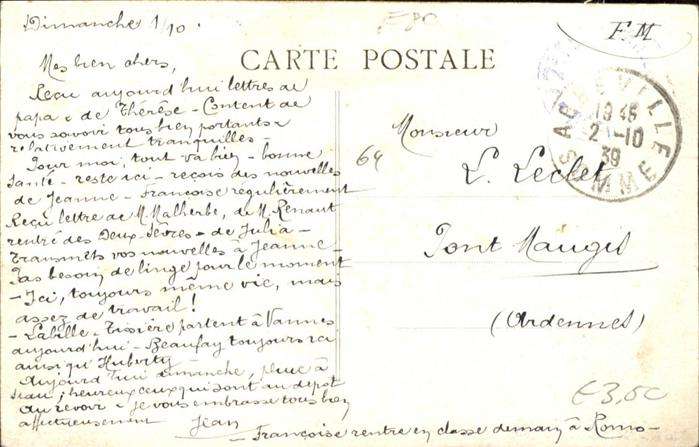 Dimanche 1/10.
F M
CARTE POSTALE
Mes bien chers,
Reçu aujourd'hui lettres de
papa & de Thérèse - Content de
vous savoir tous bien portants &
relativement tranquilles -
Pour moi, tout va bien - bonne
santé - reste ici - reçois des nouvelles
de Jeanne - Françoise régulièrement
Reçu lettre de M. Malherbe, de M. Renaut
rentré des Deux-Sèvres - de Julia -
Transmets vos nouvelles à Jeanne -
Pas besoin de linge pour le moment
- Ici, toujours même vie, mais
assez de travail !
- Labille - Tissière partent à Vannes
aujourd'hui - Beaufay toujours ici
ainsi qu'Huberty -
Aujourd'hui dimanche, pluie à
seau; heureux ceux qui sont au dépôt
Au revoir - je vous embrasse tous bien
affectueusement Jean
- Françoise rentre en classe demain à
64
Monsieur
L. Leclet
Pont Maugis
(Ardennes)
ABBEVILLE
19 45
2-10
39
SOMME
€3,50